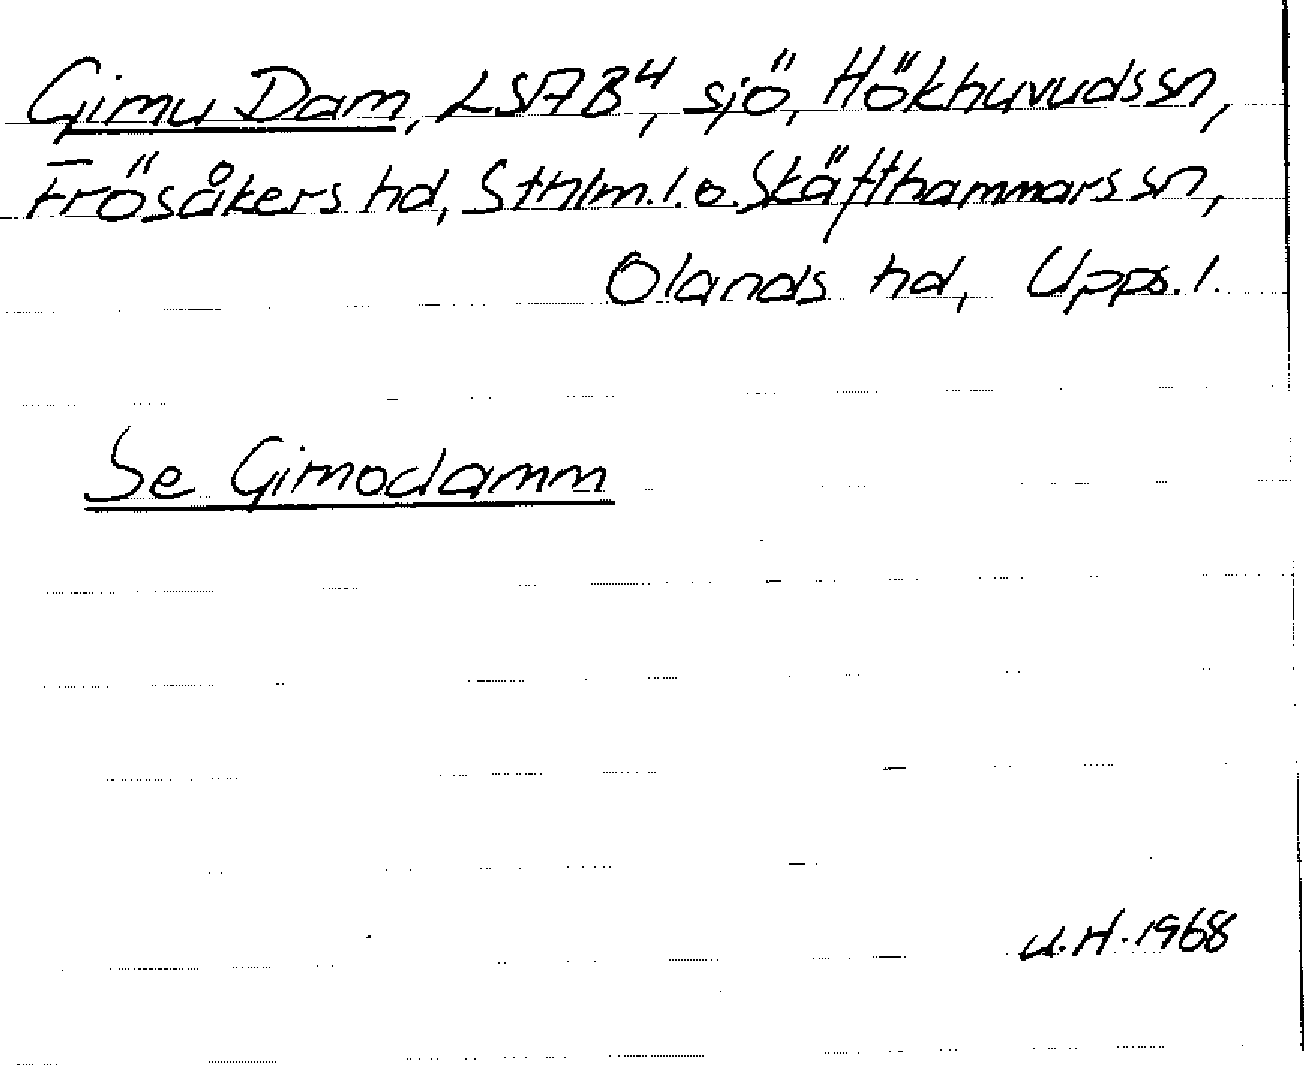 Gimu Dam, LSAB⁴, sjö, Hökhuvuds sn,
Frösåkers hd, Sthlm.l. o. Skäfthammars sn,
Olands hd, Upps.l.
Se Gimodamm
U.H. 1968